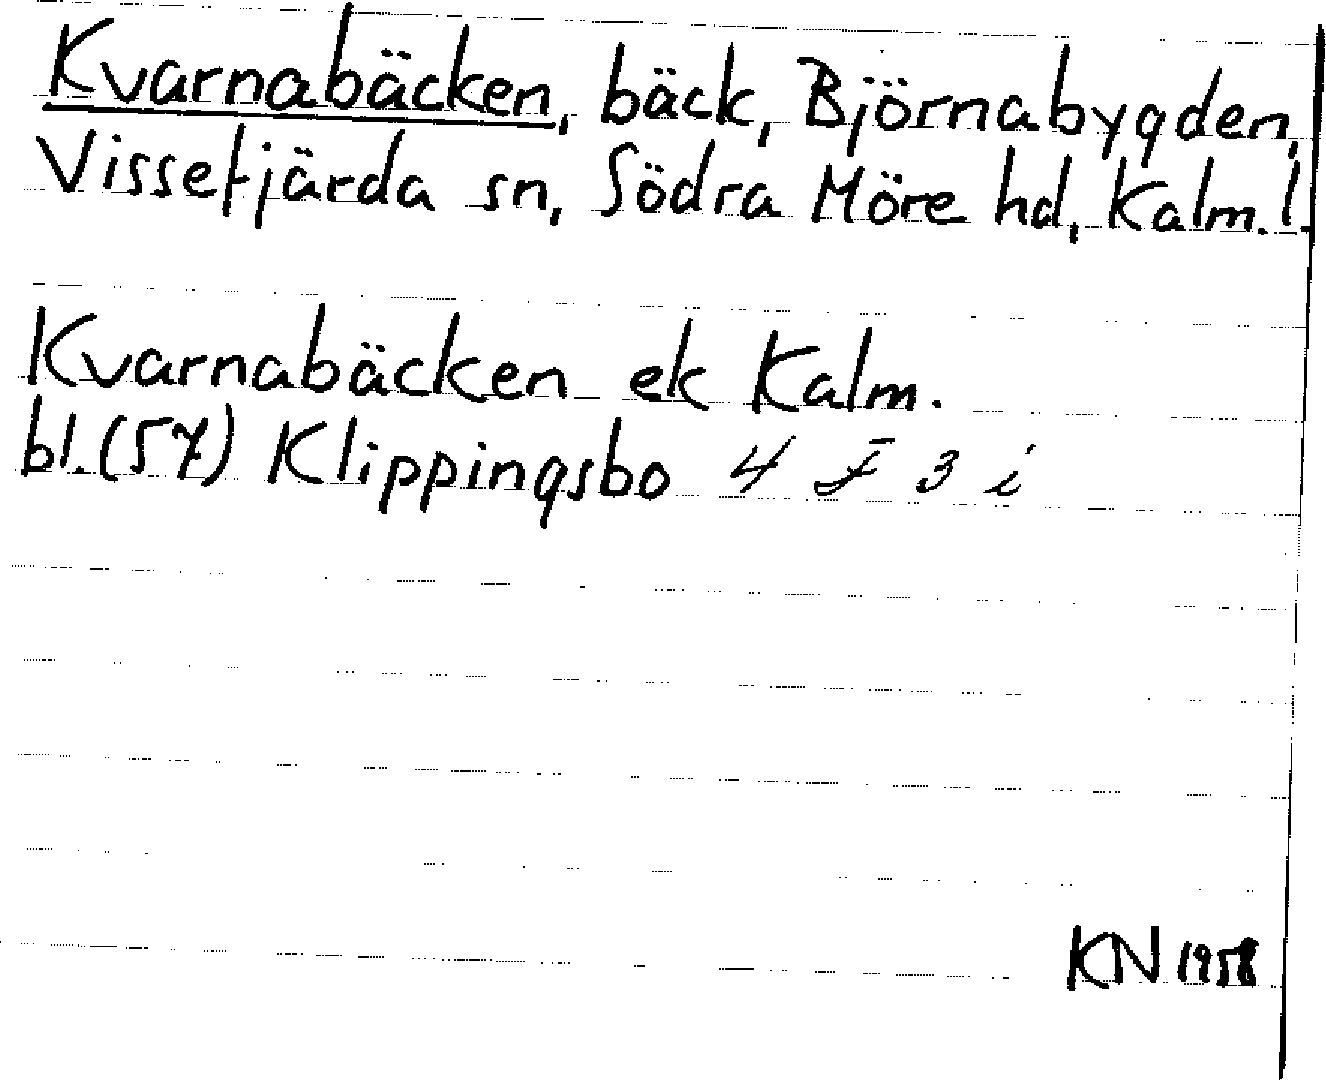 Kvarnabäcken, bäck, Björnabygden,
Vissefjärda sn, Södra Möre hd, Kalm. l.
Kvarnabäcken ek Kalm.
bl. (57) Klippingsbo 4 F 3 i
KN 1958